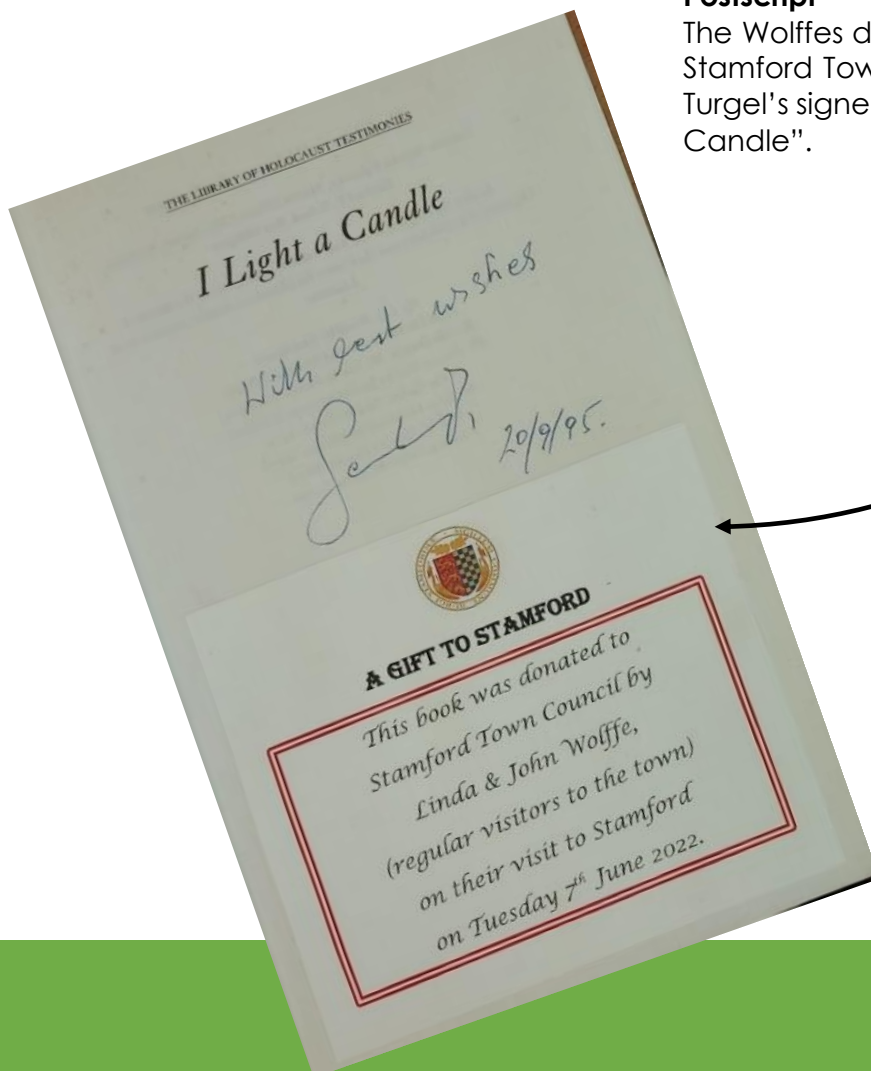 Postscript
The Wolffes d
Stamford Tow
Turgel's signe
Candle".
THE LIBRARY OF HOLOCAUST TESTIMONIES
I Light a Candle
With best wishes
20/9/95.
A GIFT TO STAMFORD
This book was donated to
Stamford Town Council by
Linda & John Wolffe,
(regular visitors to the town)
on their visit to Stamford
on Tuesday 7th June 2022.